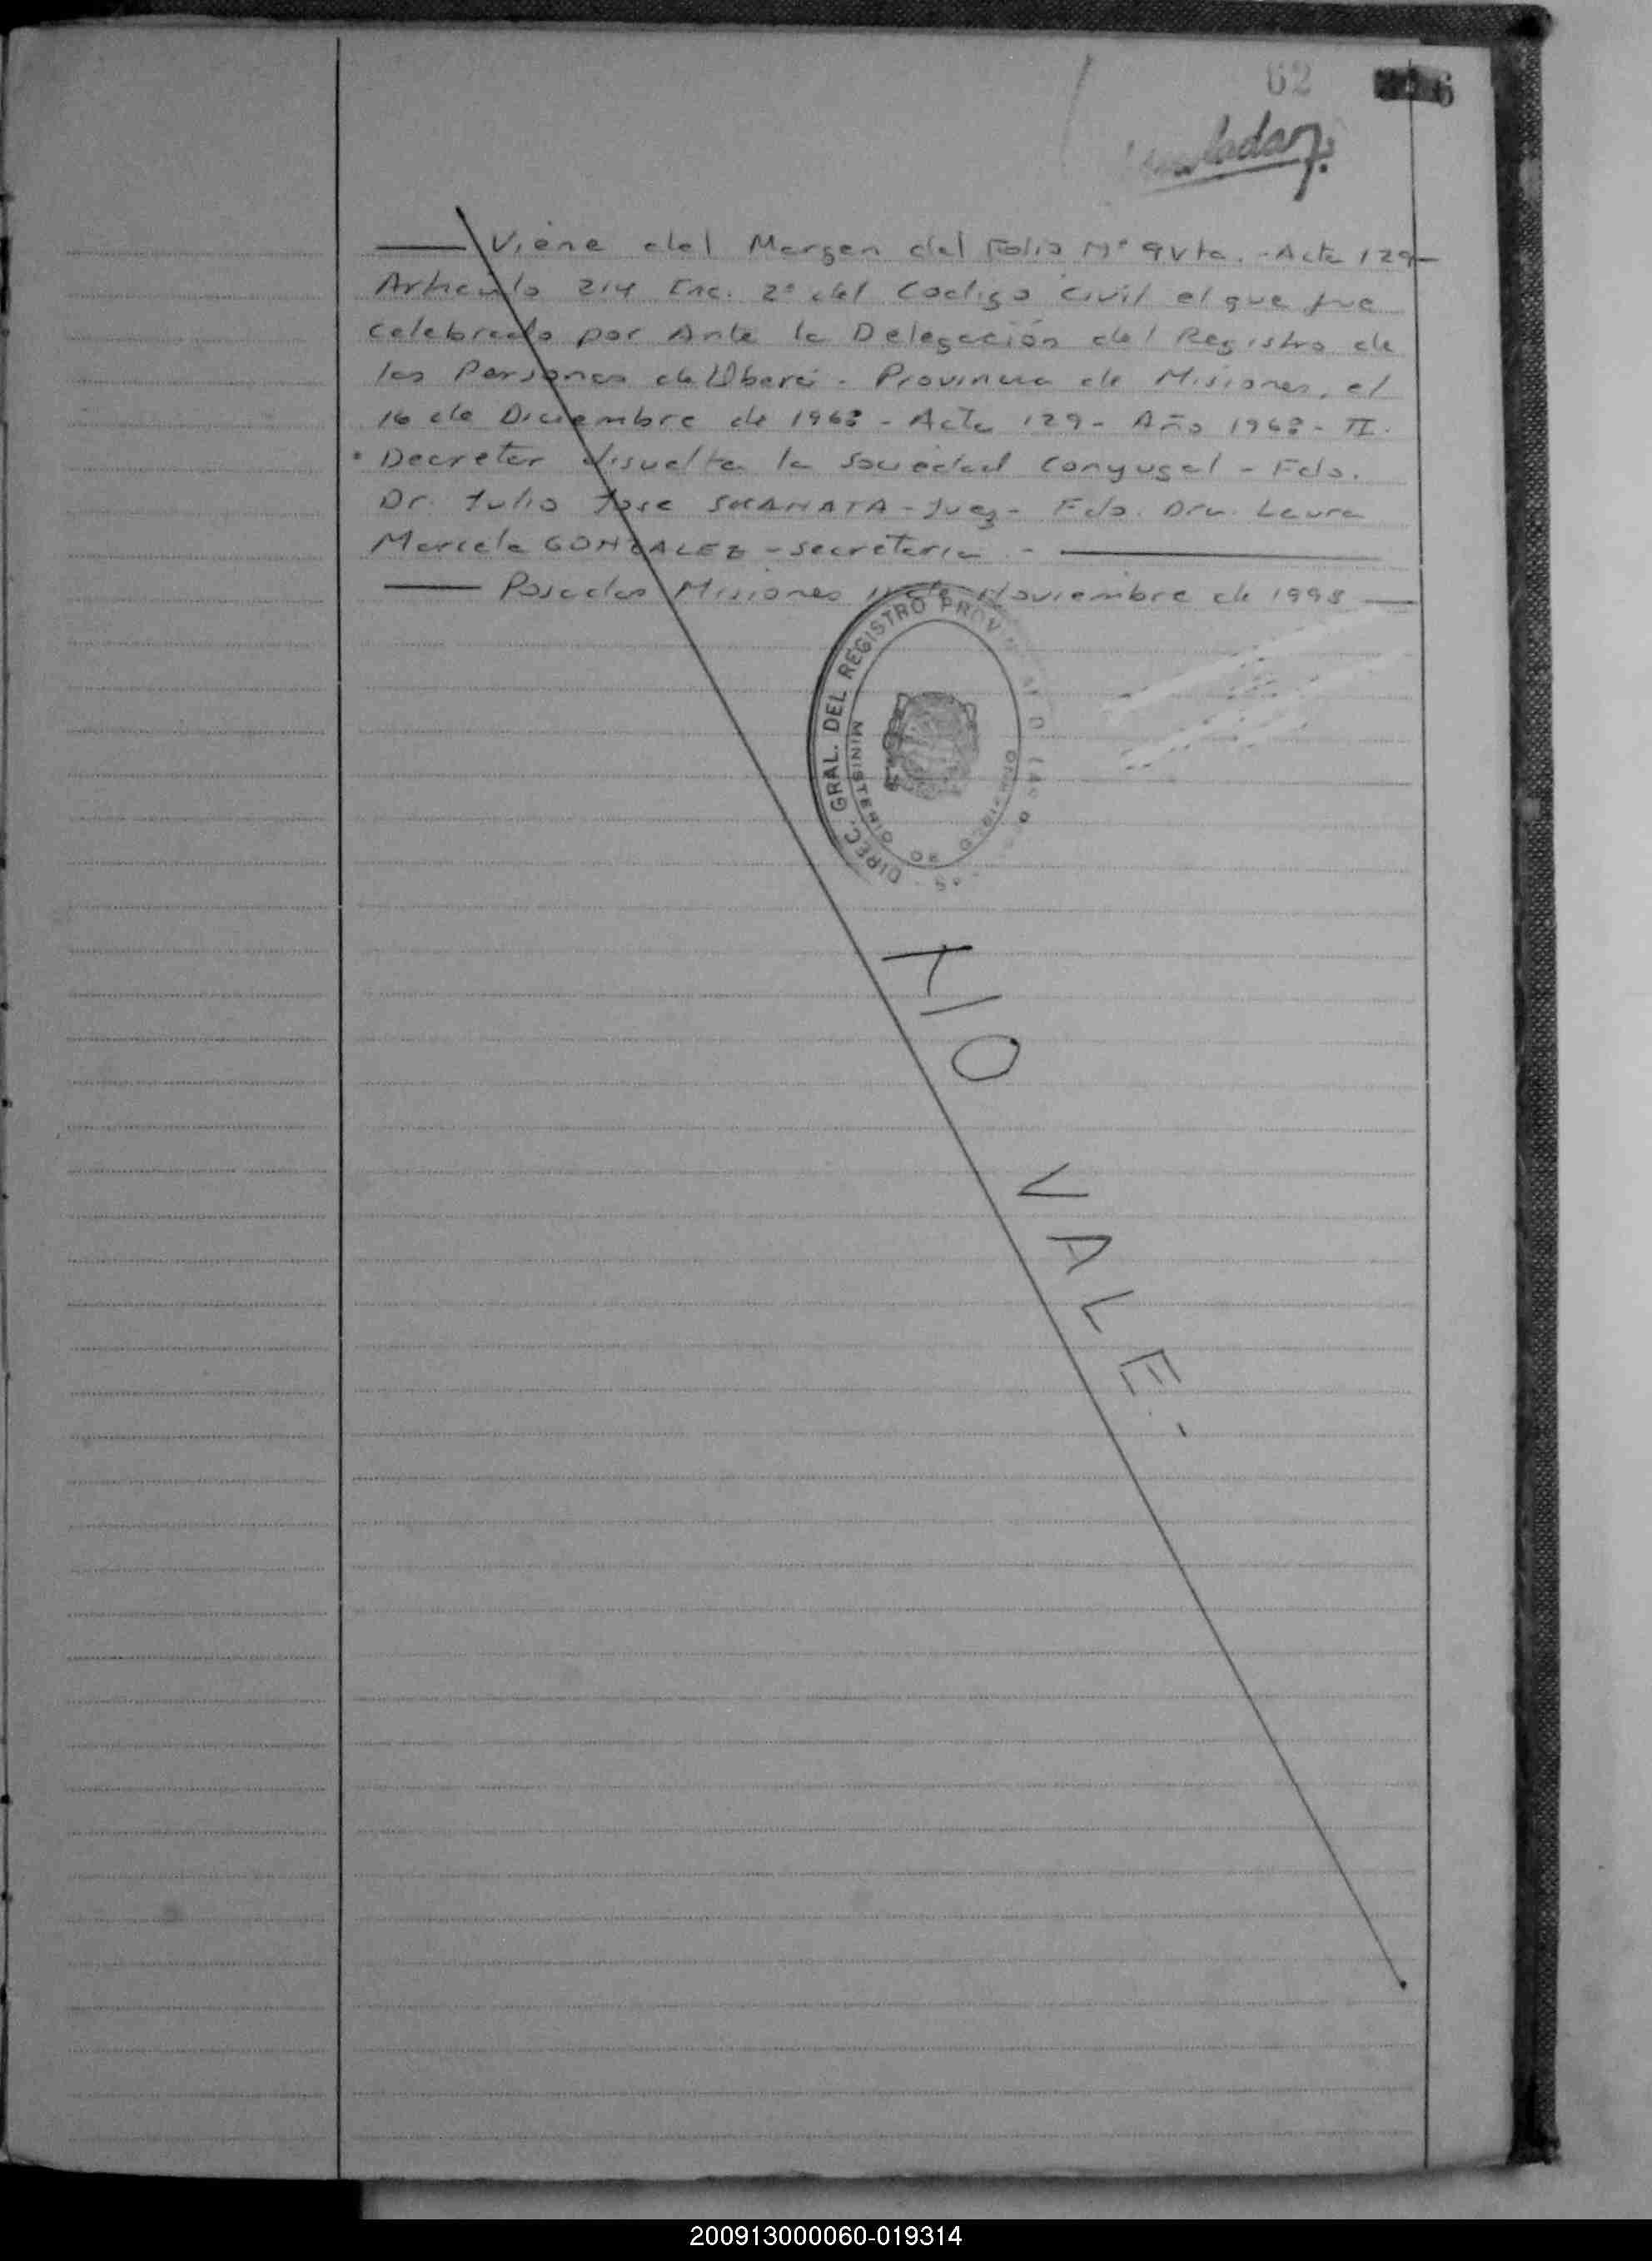 62
6
Viene del Margen del Folio Nº 9 Vta. - Acta 129 -
Articulo 214 Inc. 2º del Codigo Civil el que fue
celebrado por Ante la Delegación del Registro de
las Personas de Oberá - Provincia de Misiones, el
16 de Diciembre de 1968 - Acta 129 - Año 1968 - II.
Decretar disuelta la Sociedad Conyugal - Fdo.
Dr. Julio Jose - Juez - Fdo. Dra. Laura
Marcela GONZALEZ - secretaria -
Posadas Misiones de Noviembre de 1998
DIREC. GRAL. DEL REGISTRO PROV
MINISTERIO DE GOBIERNO
NO VALE.-
200913000060-019314